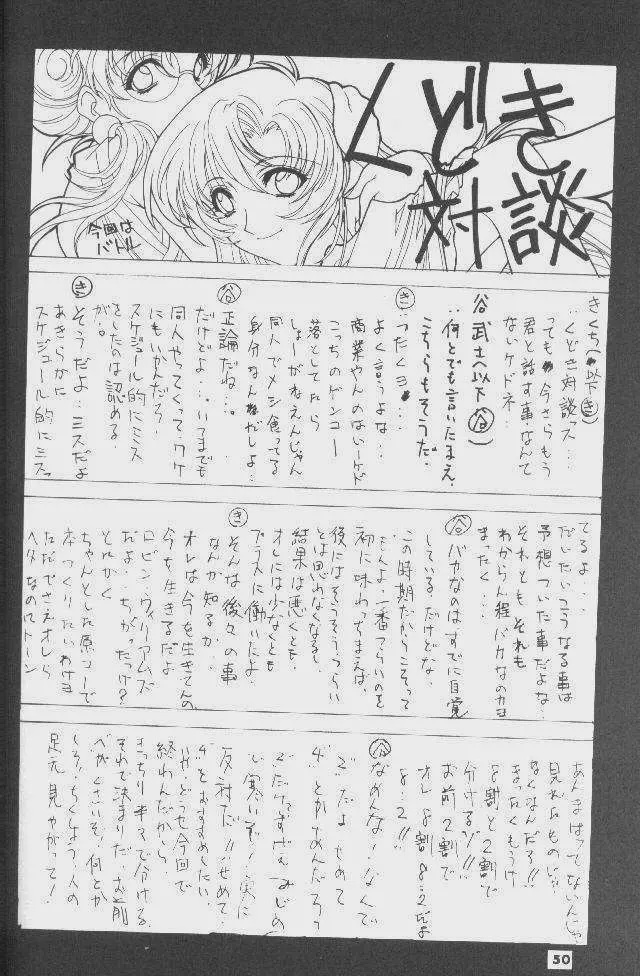 くどき
対談
今回は
バトル
きくち(以下き)
‥くどき対談っス‥‥
っても今さらもう
君と話す事なんて
ないケドネ‥
谷武士(以下谷)
‥何とでも言いたまえ、
こちらもそうだ。
き
‥ったくヨ‥‥
よく言うよな‥
商業やんのはいーけど
こっちのゲンコー
落としてたら
しょーがねえんじゃん
同人でメシ食ってる
身分なんだしよ‥
谷
正論だね‥。
だけどよ‥‥いつまでも
同人やってくってワケ
にもいかんだろ‥
スケジュール的にミス
をしたのは認める
が‥。
き
そうだよ‥ミスだよ
あきらかに
スケジュール的にミスっ
てるよ‥
だいたいこうなる事は
予想ついた事だよな‥
それともそれも
わからん程バカなのか
まったく‥‥
谷
バカなのはすでに自覚
している。だけどな‥
この時期だからこそって
もんよ‥一番つらいのを
初に味わっちまえば、
後にはそうそうつらい
とは思わなくなるし、
結果は悪くとも
オレには少なくとも
プラスに働いたよ‥
き
そんな後々の事
なんか知るか‥
オレは今を生きてんの、
今を生きるだよ
ロビン・ウィリアムズ
だよ‥ちがったっけ?
とにかく
ちゃんとした原コーで
本つくりたいわけヨ
ただでさえオレら
ヘタなのにトーン
あんまはってないんじゃ
見れたものじゃ
なくなんだろ!!
まったくもう
8割と2割で
分けるゾ!!
お前2割で
オレ8割8:2だよ
8:2!!
谷
なめんな!なんで
2だよせめて
4とかなんだろっ
反対だ!!せめて
4とおすすめしたい、
どうせ今回で
終わんだから、
きっちり半々で分ける
それで決まりだお前
足元見やがって!
50